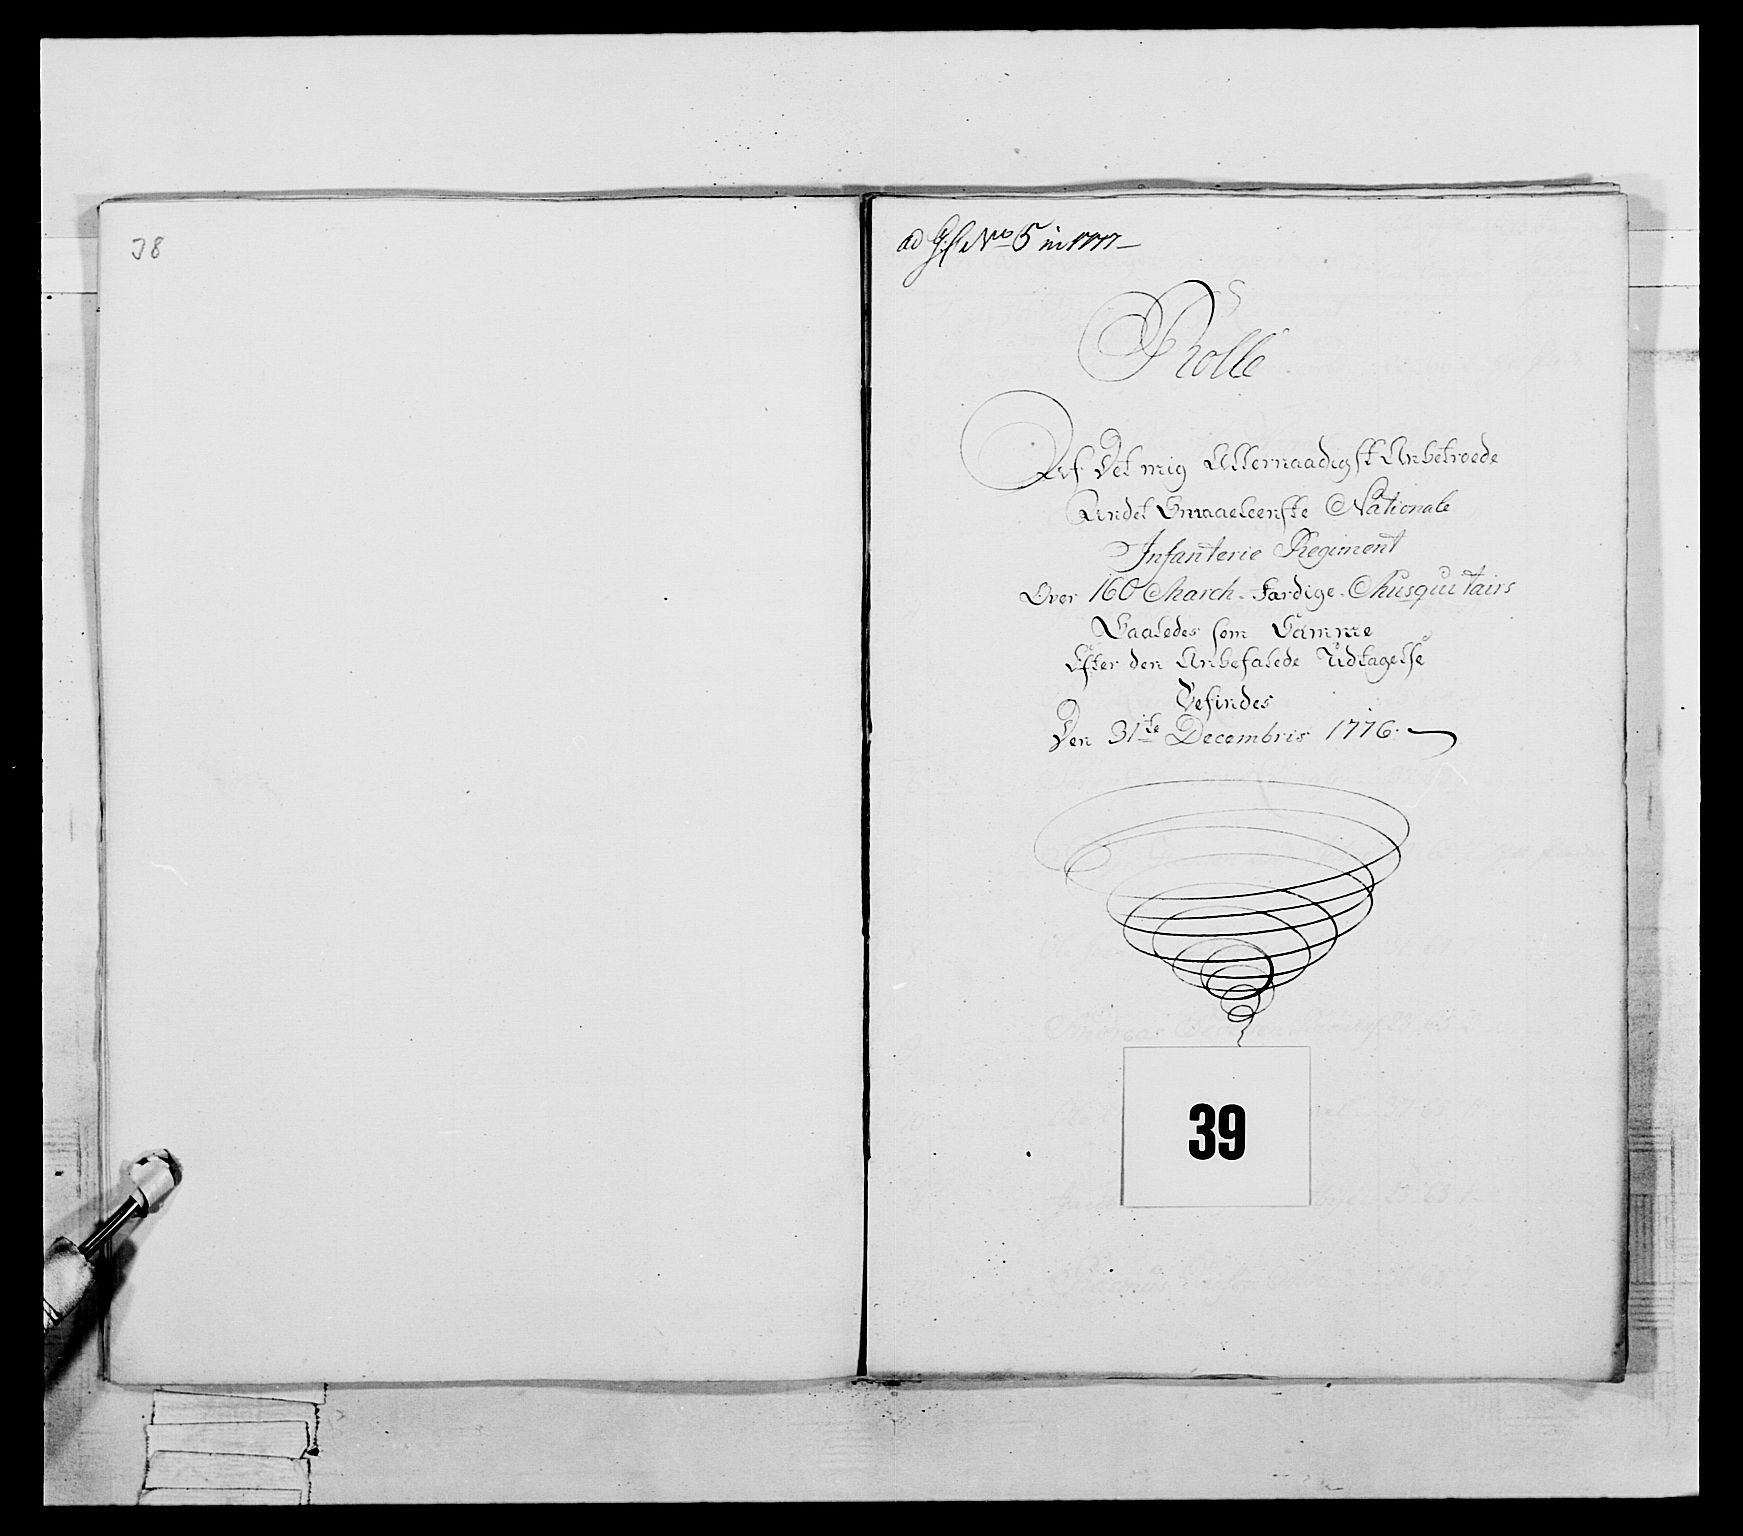 38
ad No 5 in 1777
Rolle
Af Det mig Allernaadigst Anbetroede
Andet Smaaleenske Nationale
Infanterie Regiment
Over 160 March-Færdige Musquitairs
Saaledes som Samme
Efter den Anbefalede Udtagelse
Befindes
Den 31te Decembris 1776.
39